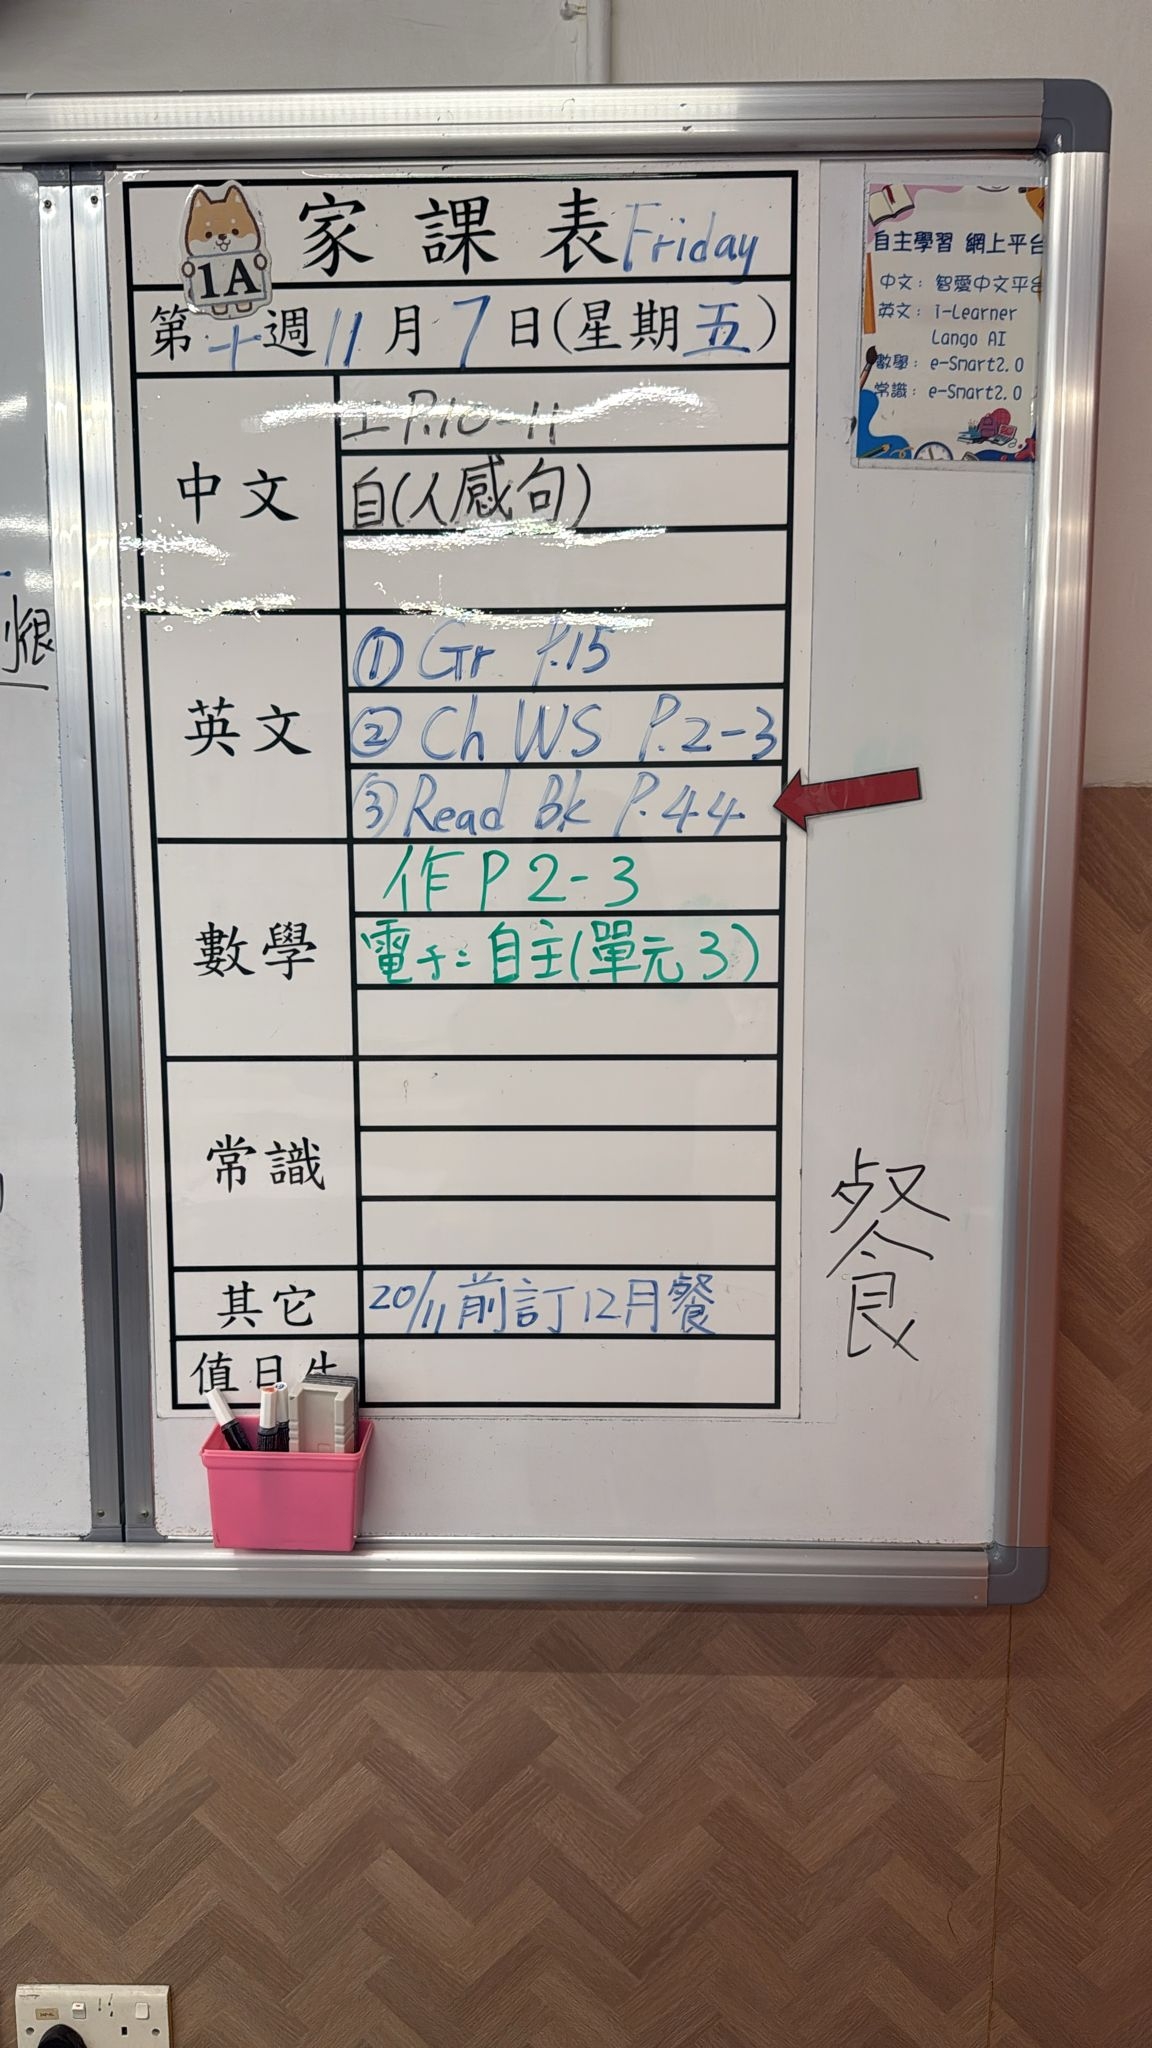 家課表 Friday
1A
第十週 11月7日(星期五)
中文
工 P.10-11
自(人感句)
英文
① Gr P.15
② Ch WS P.2-3
③ Read Bk P.44
數學
作 P 2-3
電子: 自主(單元3)
常識
其它
20/11前訂12月餐
值日生
自主學習 網上平台
中文: 智愛中文平台
英文: i-Learner
Lango AI
數學: e-Smart2.0
常識: e-Smart2.0
餐